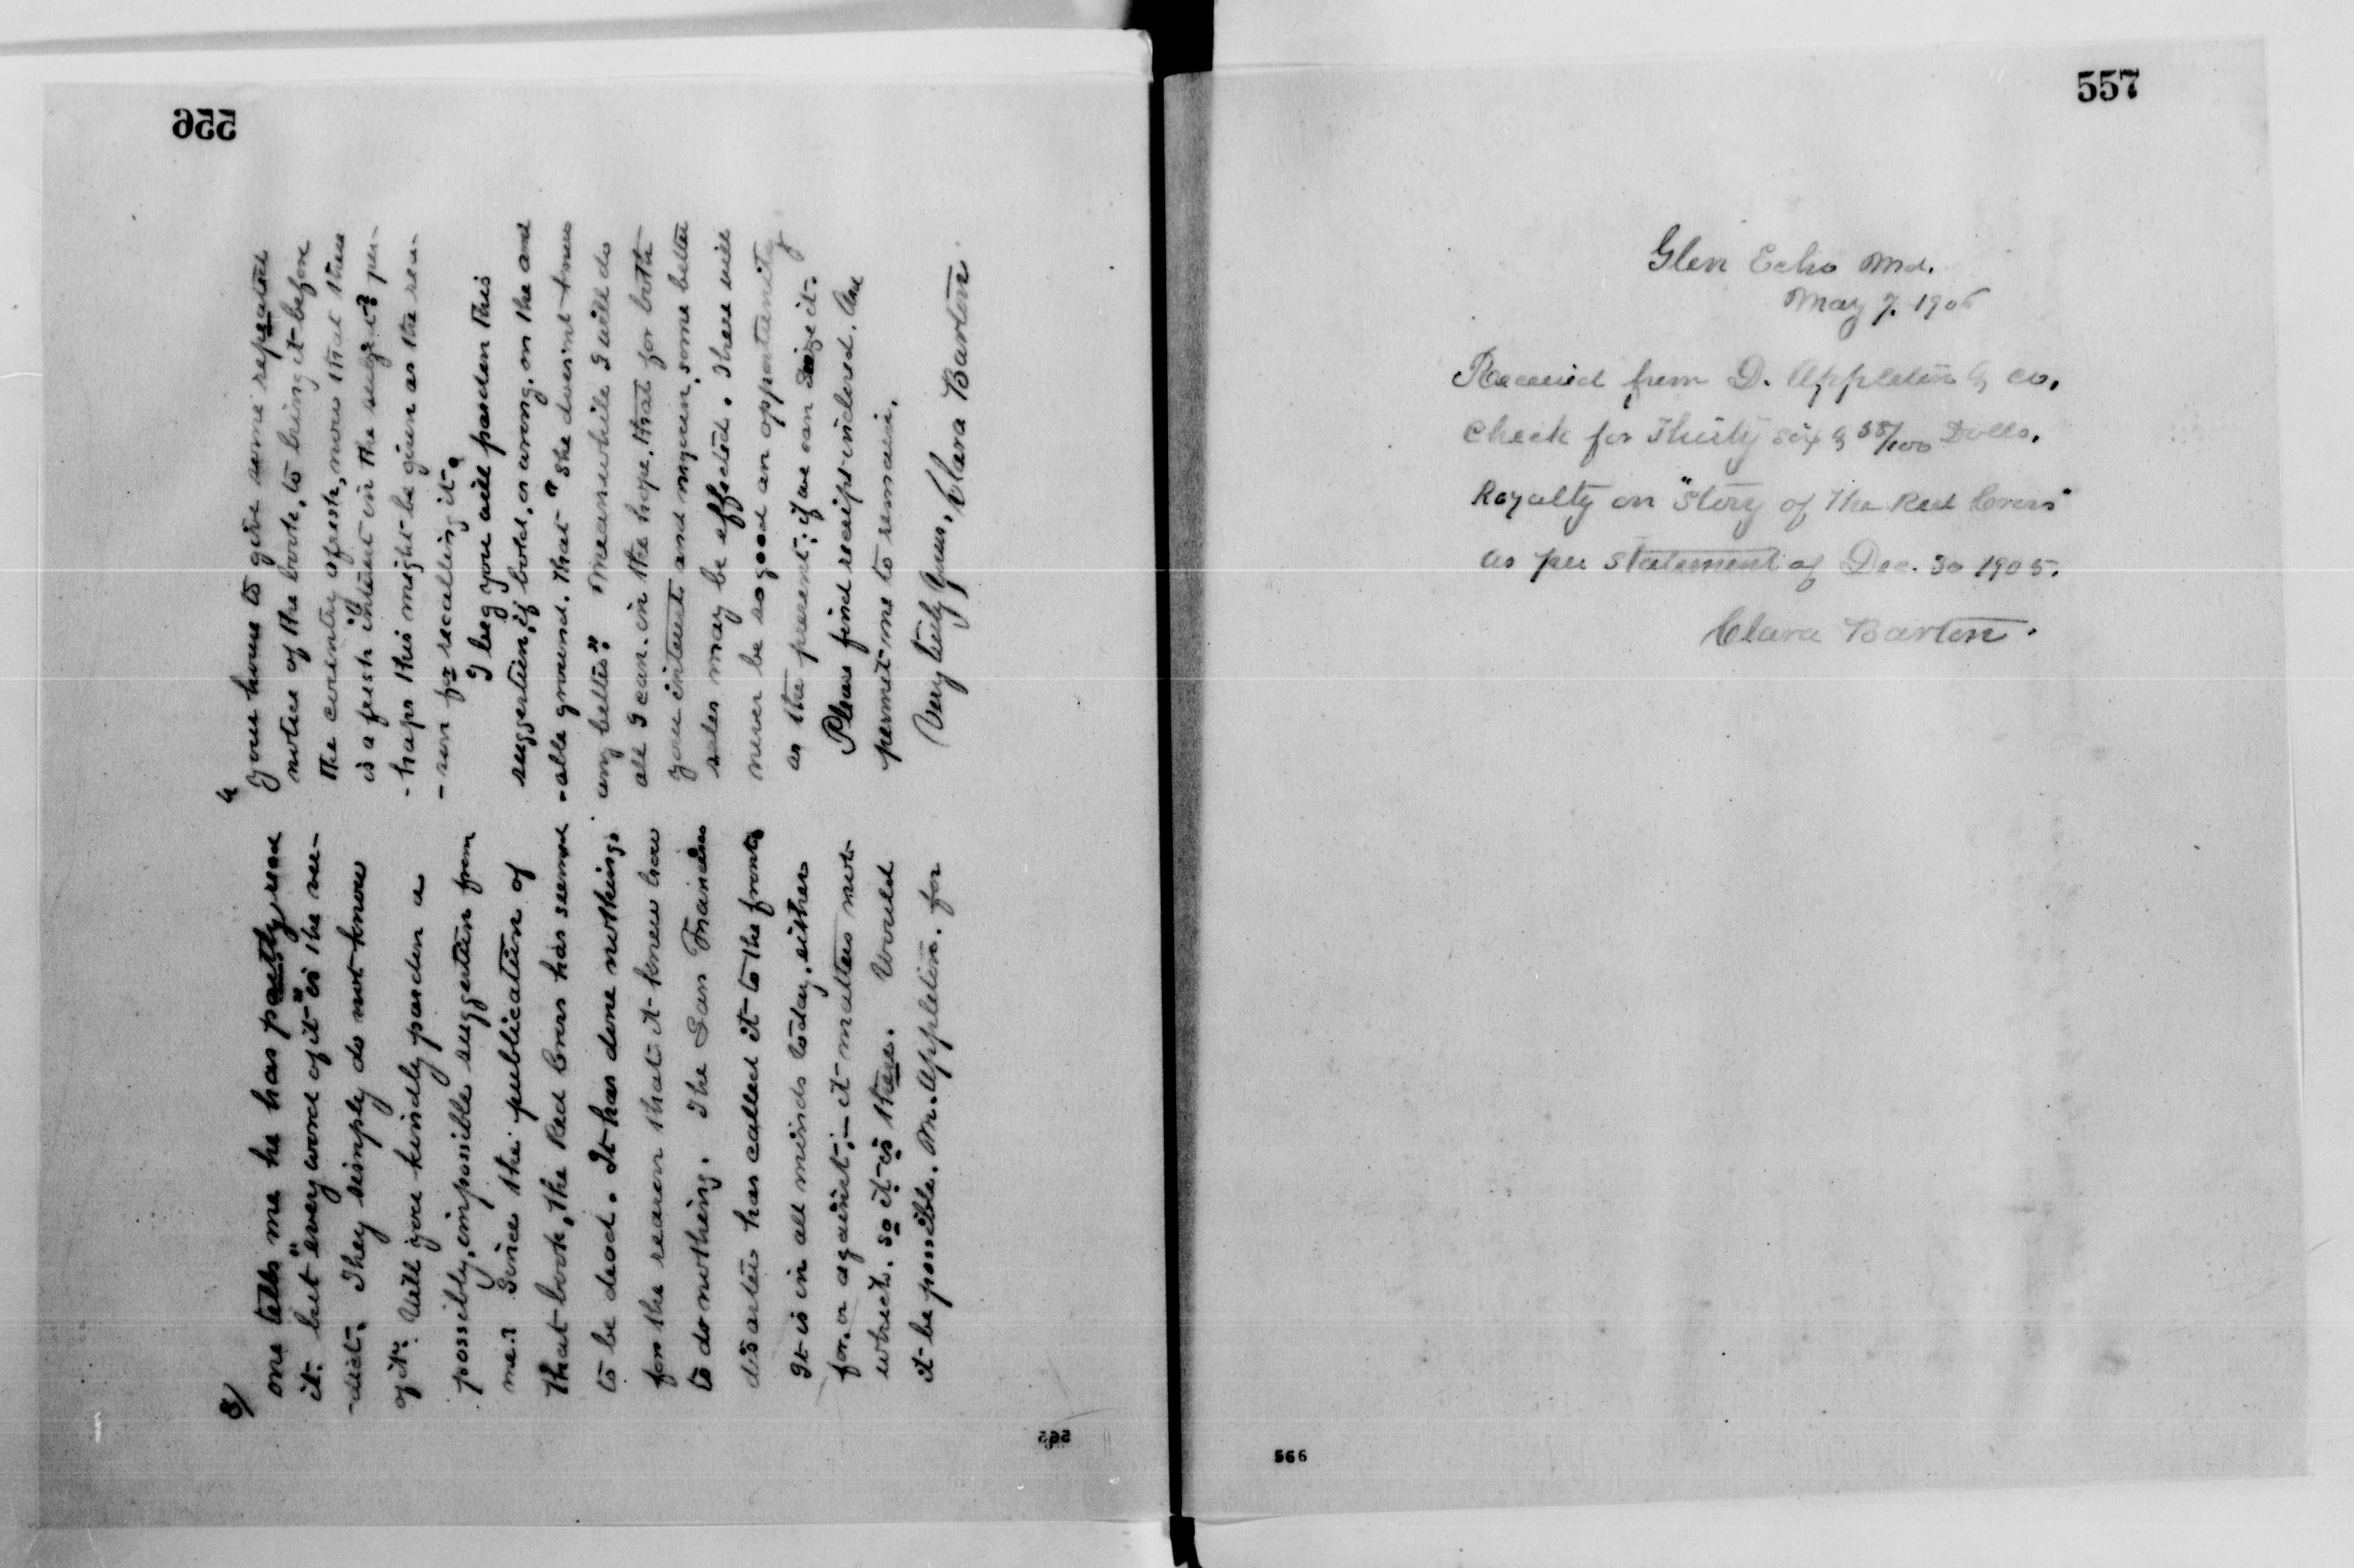 556
3/
one tells me he has partly read
it. but "every word of it" is the ver-
-dict. They simply do not know
of it. Will you kindly pardon a
possibly, impossible suggestion from
me? Since the publication of
that book, the Red Cross has seemed
to be dead. It has done nothing.
for the reason that it knew how
to do nothing. The San Francisco
disaster has called it to the front.
It is in all minds today, either
for, or against; - it matters not
which. so it is there. Would
it be possible. Mr. Appleton. for
4
your house to give some repeated
notice of the book, to bring it before
the country afresh, now that there
is a fresh interest in the subject? per-
-haps this might be given as the rea-
-son for recalling it.
I beg you will pardon this
suggestion, if bold, or wrong, on the
-able ground. that "she doesn't know
any better." Meanwhile I will do
all I can. in the hope, that for both
your interest and my own, some better
sales may be effected. There will
never be so good an opportunity
as the present; if we can seize it.
Please find receipt inclosed. And
permit me to remain,
Very truly yours, Clara Barton
565
557
Glen Echo Md.
May 7. 1906
Received from D. Appleton & Co.
Check for Thirty six & 58/100 Dolls.
Royalty on "Story of the Red Cross"
as per statement of Dec. 30 1905.
Clara Barton.
566